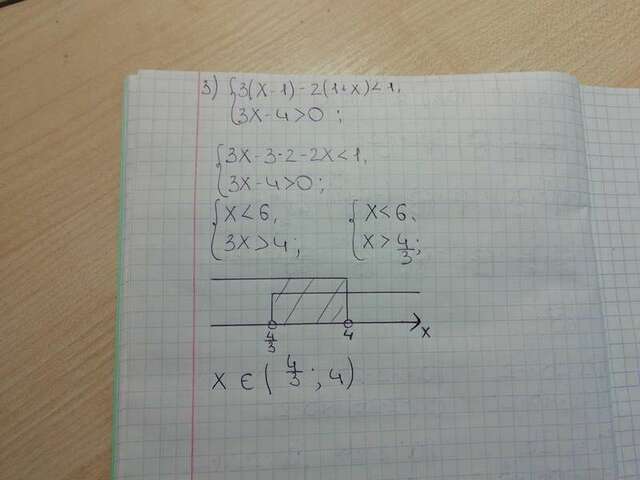 3) {3(x-1)-2(1+x)<1,
{3x-4>0;
{3x-3-2-2x<1,
{3x-4>0;
{x<6, {x<6,
{3x>4; {x>4/3;
4/3 4 x
x ∈ (4/3; 4)